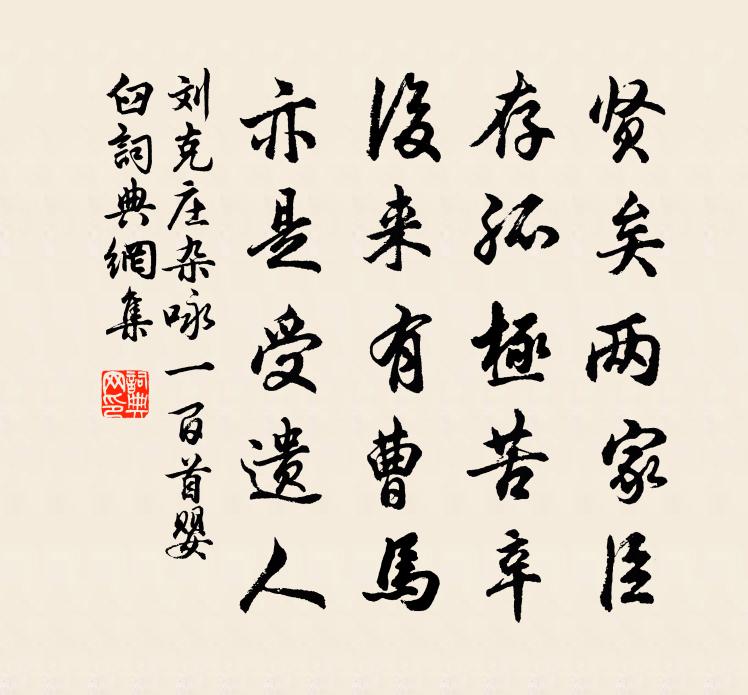 贤矣两家臣
存孤極苦辛
後来有曹馬
亦是受遗人
刘克庄杂咏一百首婴
臼詞典網集
詞典
网印